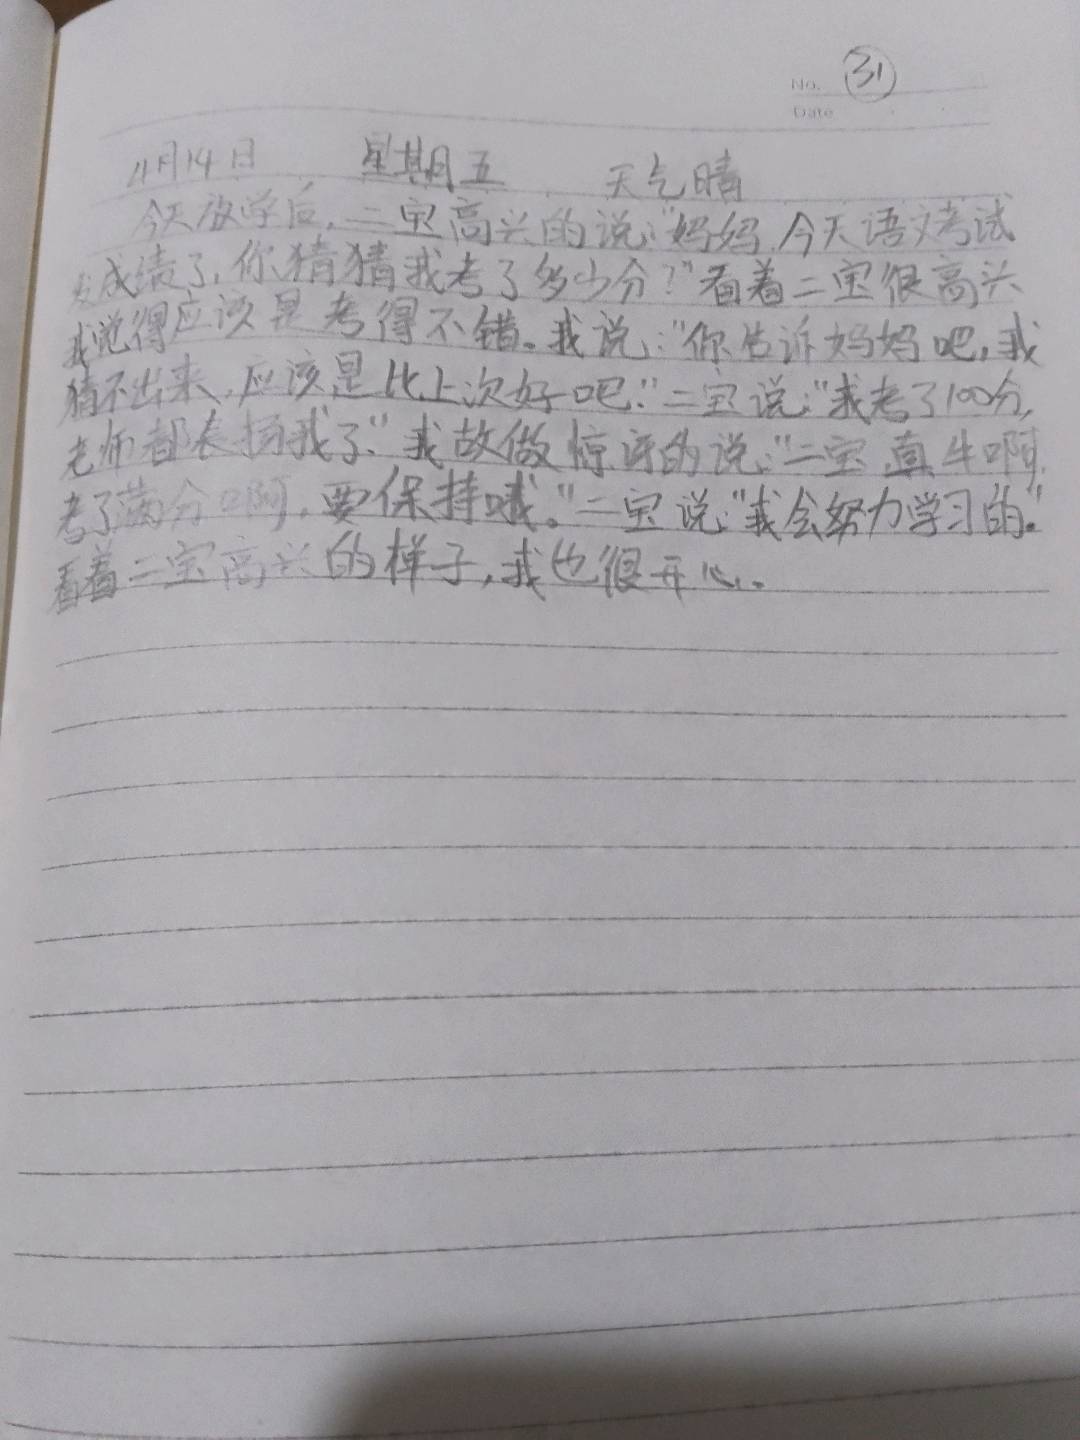 No. 31
Date
11月14日 星期五 天气晴
今天放学后,二宝高兴的说:"妈妈,今天语文考试
发成绩了,你猜猜我考了多少分?"看着二宝很高兴
我觉得应该是考得不错。我说:"你告诉妈妈吧,我
猜不出来,应该是比上次好吧."二宝说:"我考了100分,
老师都表扬我了."我故做惊讶的说:"二宝真牛啊,
考了满分啊,要保持哦。"二宝说"我会努力学习的。"
看着二宝高兴的样子,我也很开心。